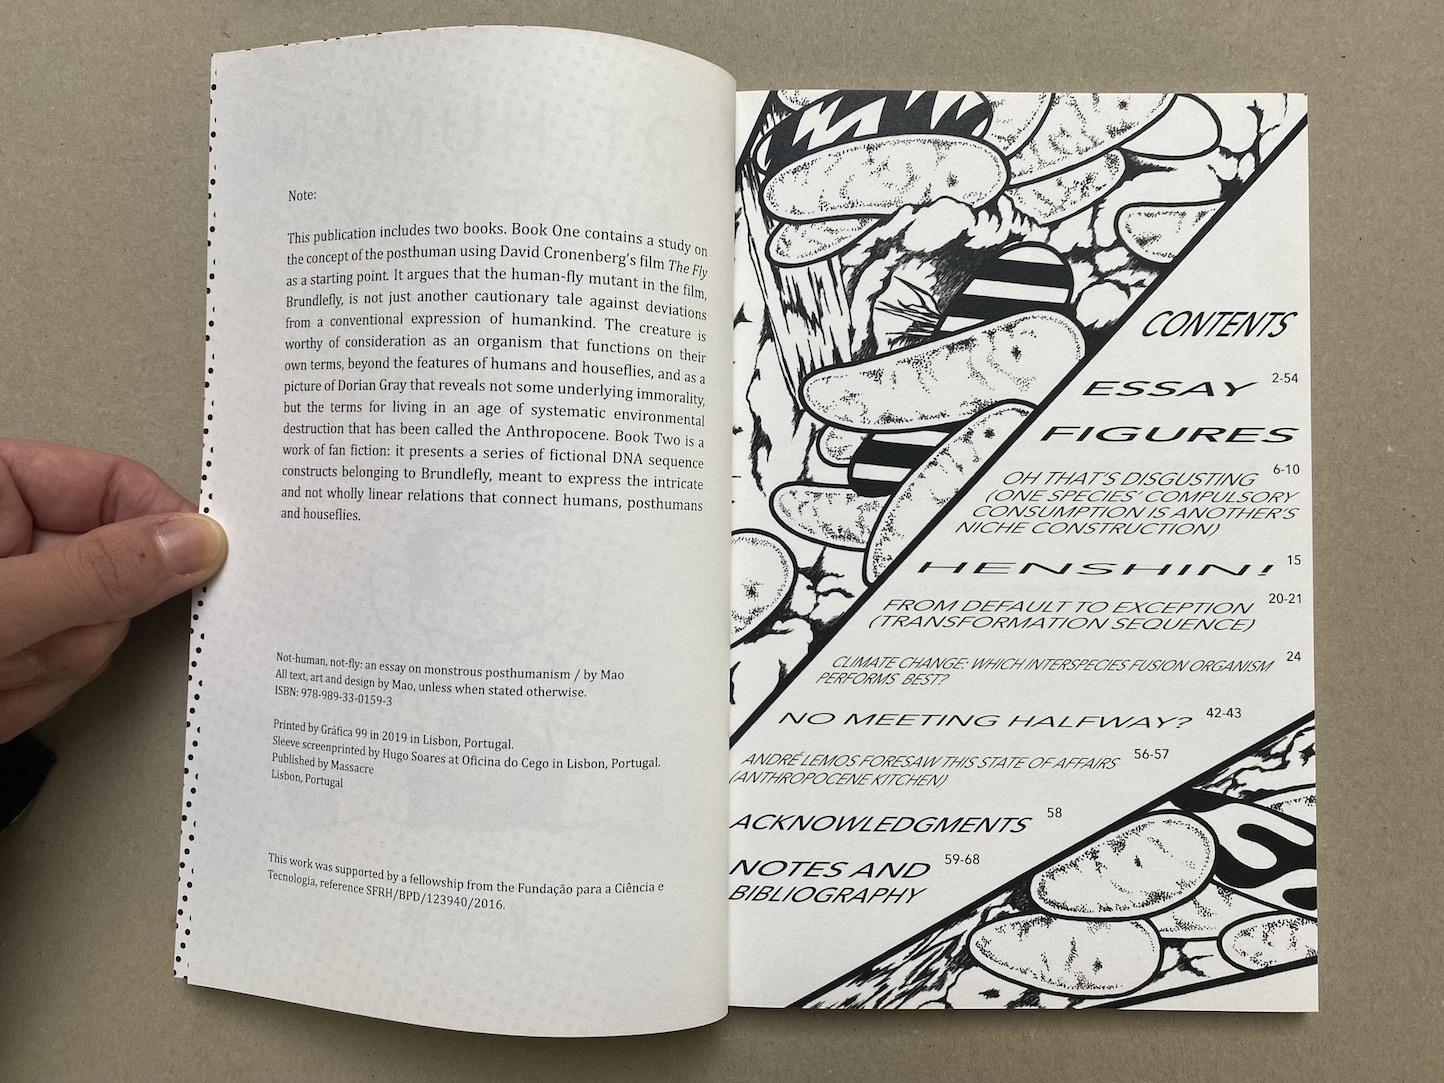 Note:
This publication includes two books. Book One contains a study on
the concept of the posthuman using David Cronenberg's film The Fly
as a starting point. It argues that the human-fly mutant in the film,
Brundlefly, is not just another cautionary tale against deviations
from a conventional expression of humankind. The creature is
worthy of consideration as an organism that functions on their
own terms, beyond the features of humans and houseflies, and as a
picture of Dorian Gray that reveals not some underlying immorality,
but the terms for living in an age of systematic environmental
destruction that has been called the Anthropocene. Book Two is a
work of fan fiction: it presents a series of fictional DNA sequence
constructs belonging to Brundlefly, meant to express the intricate
and not wholly linear relations that connect humans, posthumans
and houseflies.
Not-human, not-fly: an essay on monstrous posthumanism / by Mao
All text, art and design by Mao, unless when stated otherwise.
ISBN: 978-989-33-0159-3
Printed by Gráfica 99 in 2019 in Lisbon, Portugal.
Sleeve screenprinted by Hugo Soares at Oficina do Cego in Lisbon, Portugal.
Published by Massacre
Lisbon, Portugal
This work was supported by a fellowship from the Fundação para a Ciência e
Tecnologia, reference SFRH/BPD/123940/2016.
CONTENTS
ESSAY 2-54
FIGURES
OH THAT'S DISGUSTING 6-10
(ONE SPECIES' COMPULSORY
CONSUMPTION IS ANOTHER'S
NICHE CONSTRUCTION)
HENSHIN! 15
FROM DEFAULT TO EXCEPTION 20-21
(TRANSFORMATION SEQUENCE)
CLIMATE CHANGE: WHICH INTERSPECIES FUSION ORGANISM 24
PERFORMS BEST?
NO MEETING HALFWAY? 42-43
ANDRÉ LEMOS FORESAW THIS STATE OF AFFAIRS 56-57
(ANTHROPOCENE KITCHEN)
ACKNOWLEDGMENTS 58
NOTES AND 59-68
BIBLIOGRAPHY